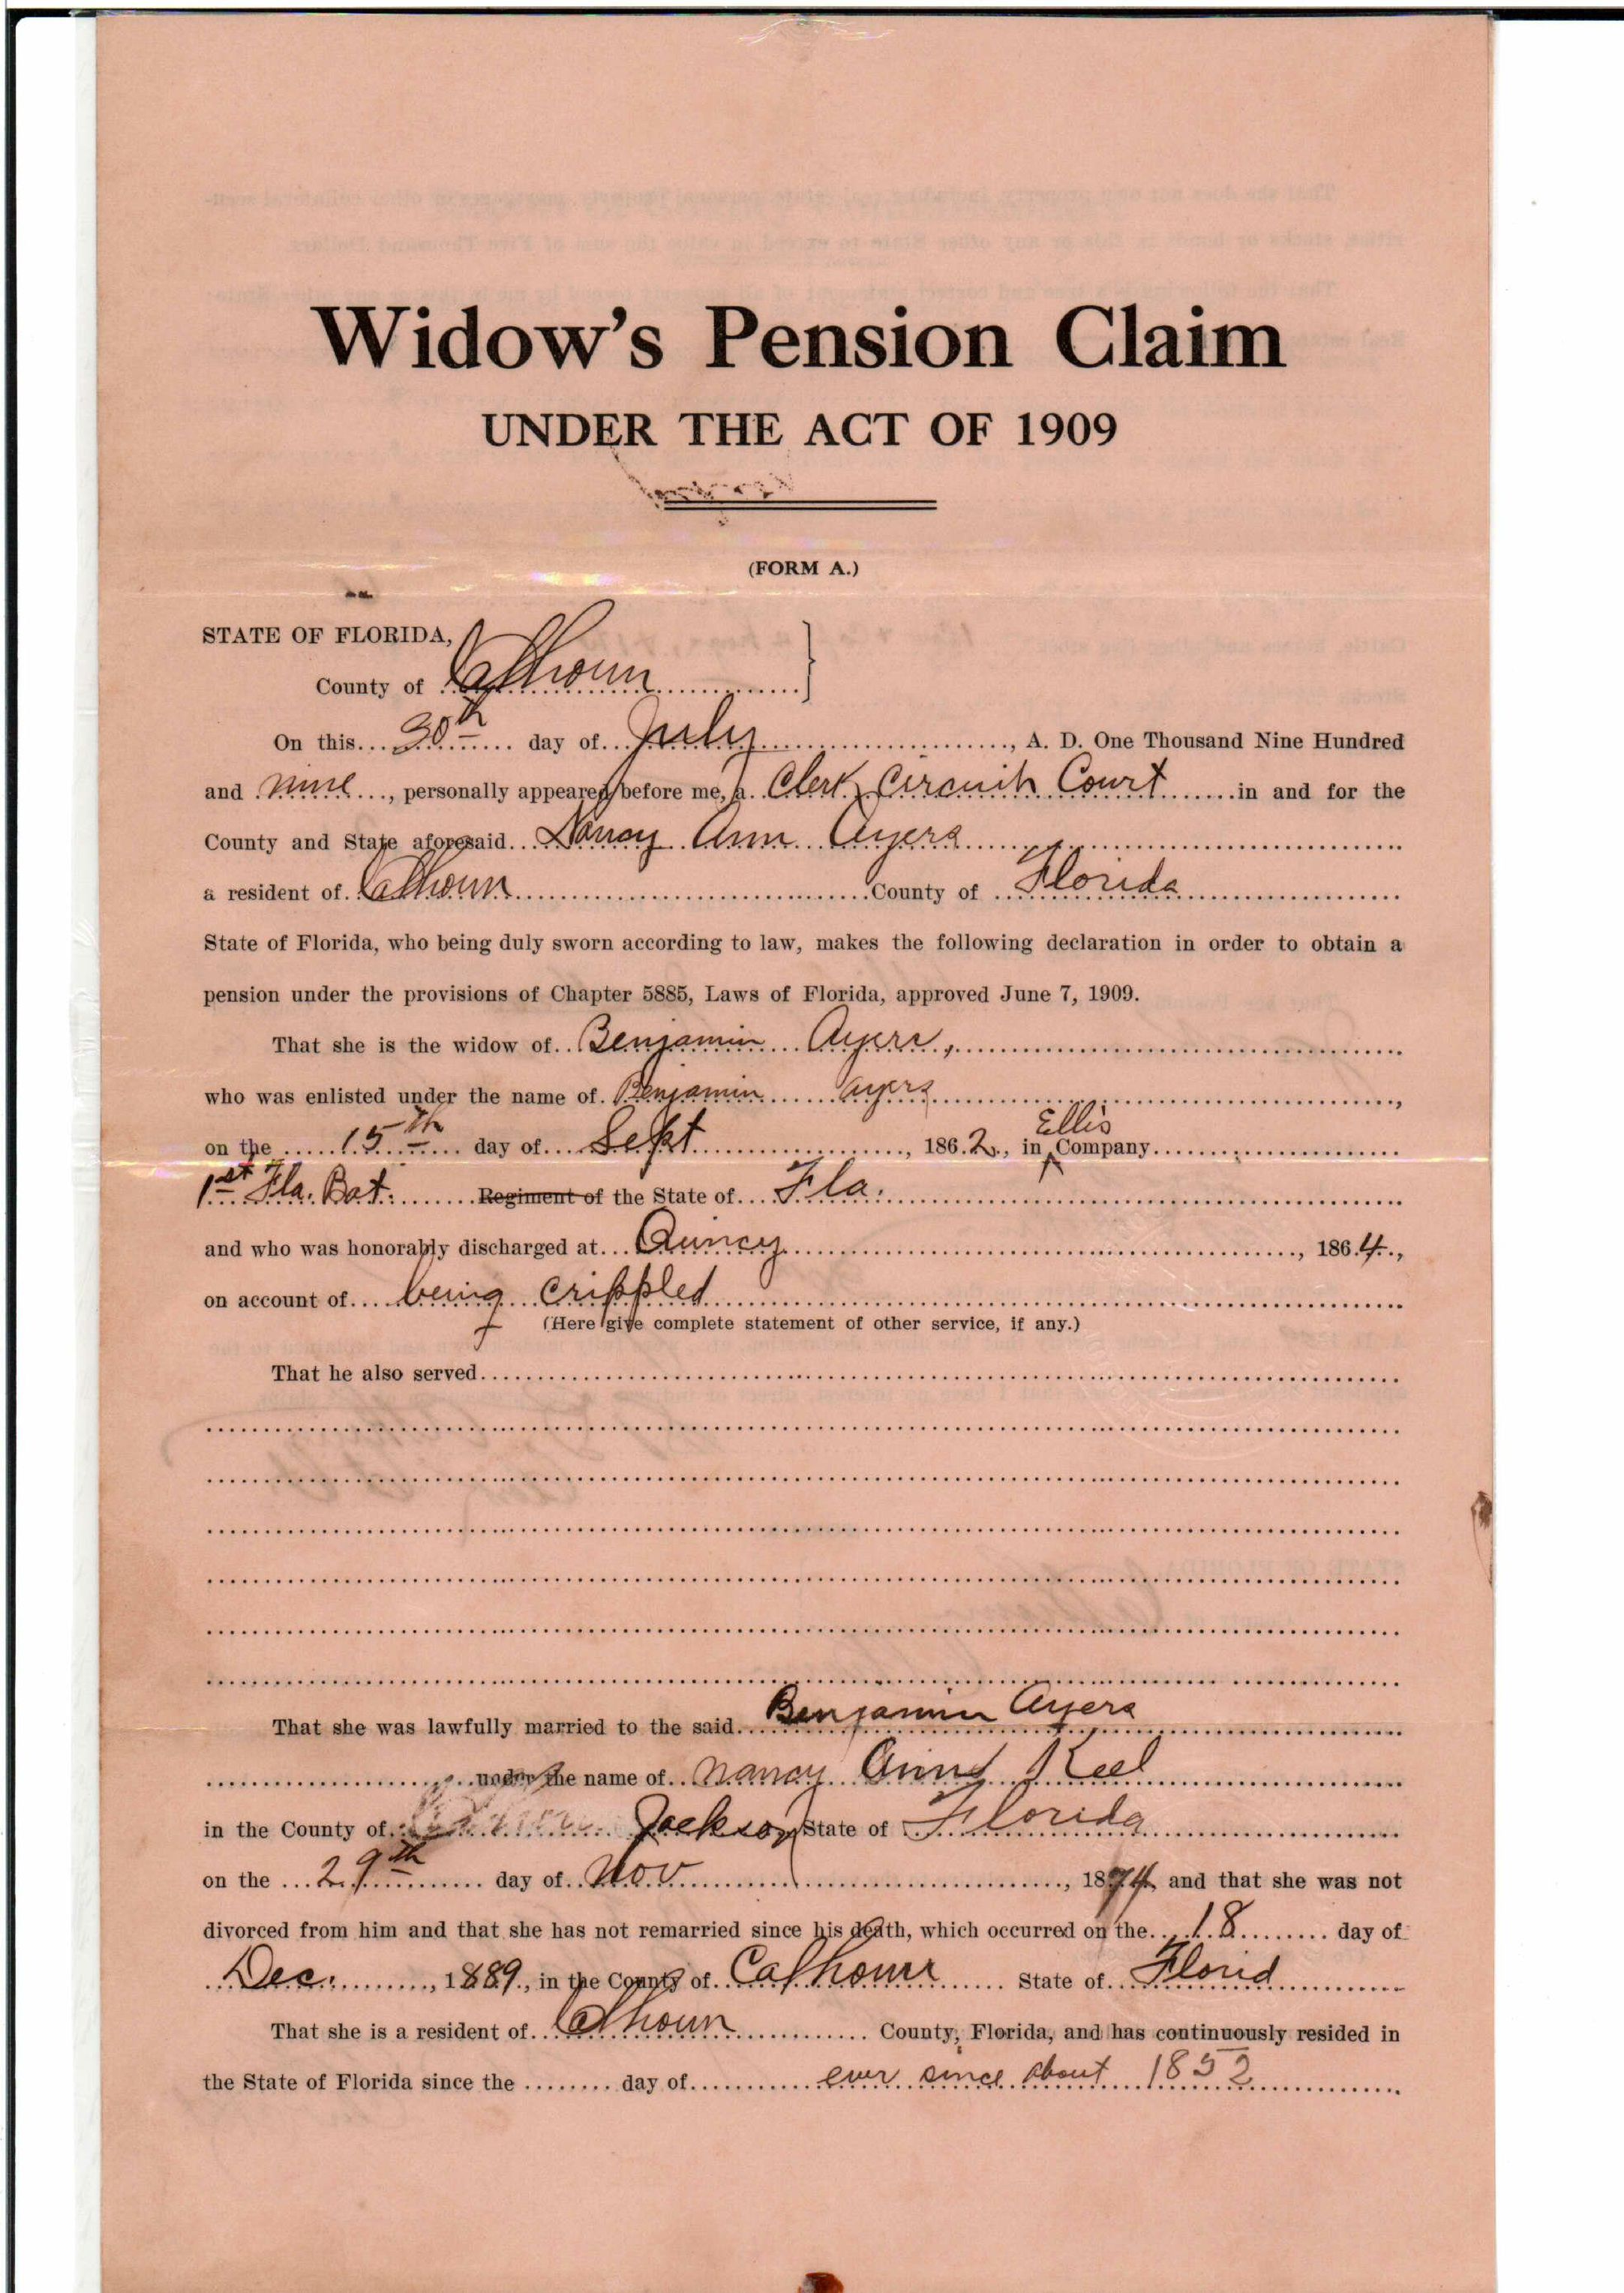 Widow's Pension Claim
UNDER THE ACT OF 1909
(FORM A.)
STATE OF FLORIDA,
County of Calhoun
On this 30th day of July, A. D. One Thousand Nine Hundred
and nine, personally appeared before me, a Clerk Circuit Court in and for the
County and State aforesaid Nancy Ann Ayers
a resident of Calhoun County of Florida
State of Florida, who being duly sworn according to law, makes the following declaration in order to obtain a
pension under the provisions of Chapter 5885, Laws of Florida, approved June 7, 1909.
That she is the widow of Benjamin Ayers,
who was enlisted under the name of Benjamin Ayers,
on the 15th day of Sept, 1862, in Ellis Company
1st Fla. Bat. Regiment of the State of Fla.
and who was honorably discharged at Quincy, 1864,
on account of being crippled
(Here give complete statement of other service, if any.)
That he also served
That she was lawfully married to the said Benjamin Ayers
under the name of Nancy Ann Keel
in the County of Jackson State of Florida
on the 29th day of Nov, 1874, and that she was not
divorced from him and that she has not remarried since his death, which occurred on the 18 day of
Dec., 1889, in the County of Calhoun State of Florid
That she is a resident of Calhoun County, Florida, and has continuously resided in
the State of Florida since the day of ever since about 1852